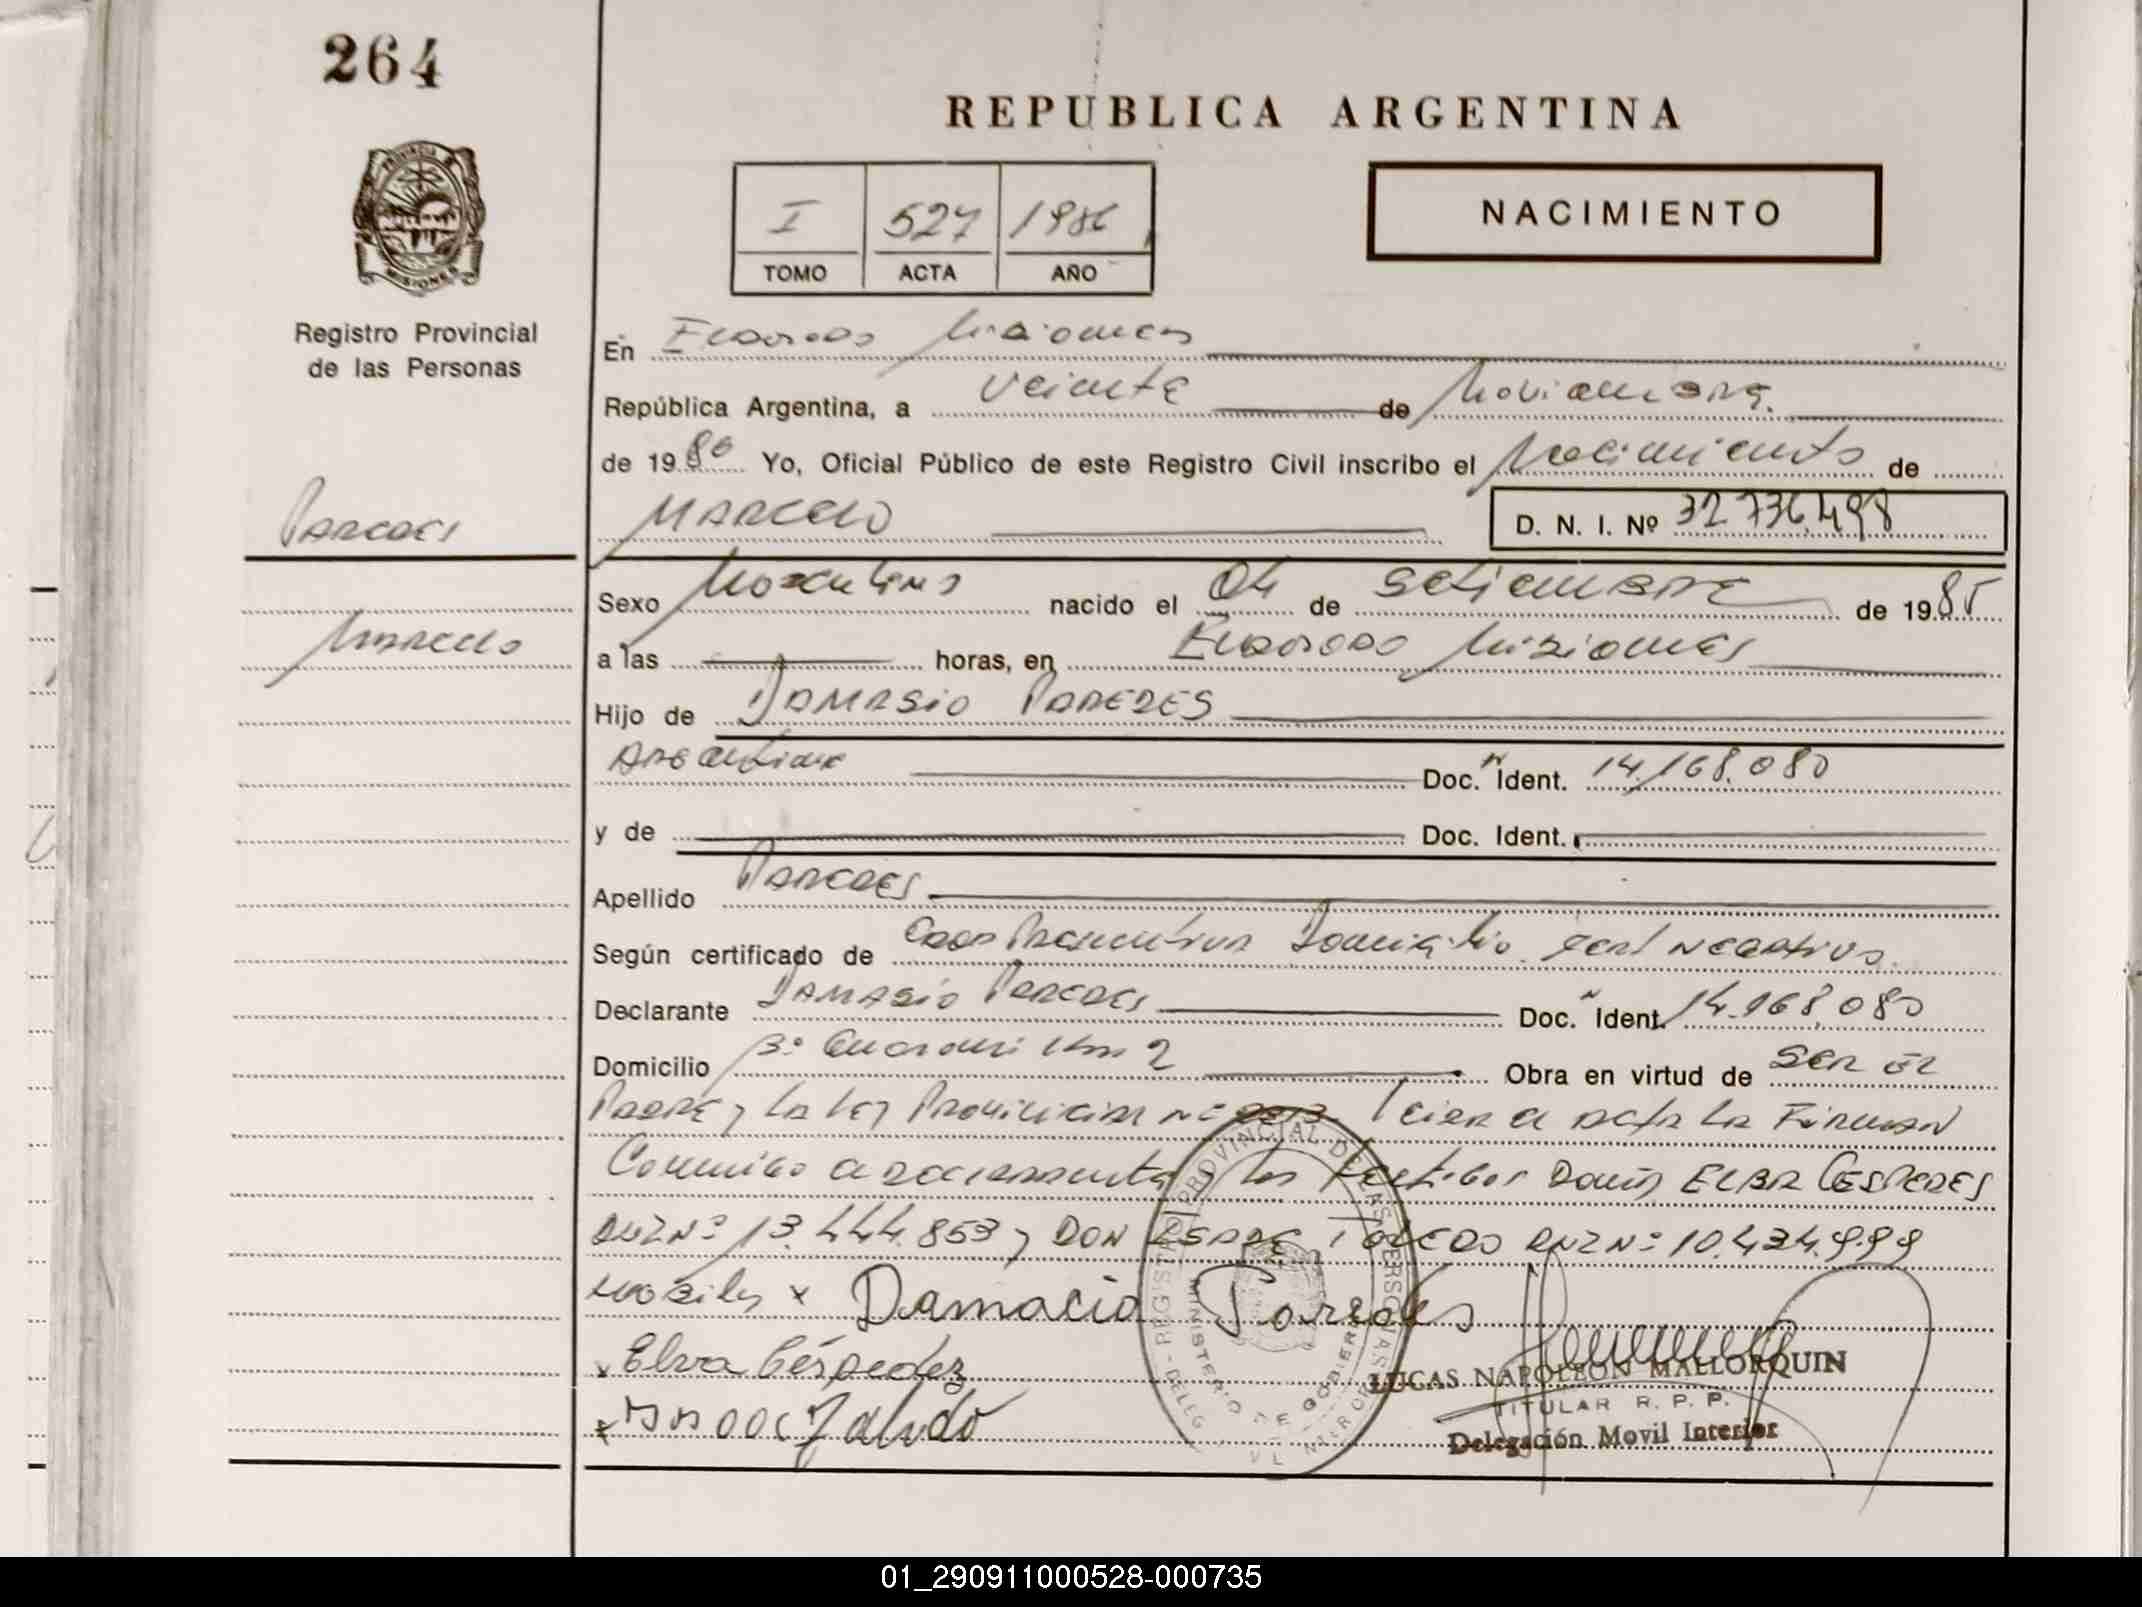 264
REPUBLICA ARGENTINA
I 527 1986
TOMO ACTA AÑO
NACIMIENTO
PROVINCIA DE MISIONES
Registro Provincial
de las Personas
En Eldorado Misiones
República Argentina, a veinte de Noviembre
de 1986 Yo, Oficial Público de este Registro Civil inscribo el Nacimiento de
Paredes
MARCELO
D. N. I. Nº 32.736.498
Sexo Masculino nacido el 04 de setiembre de 1985
Marcelo
a las horas, en Eldorado Misiones
Hijo de DAMASIO PAREDES
Argentino Doc. Ident. 14.168.080
y de Doc. Ident.
Apellido Paredes
Según certificado de Domicilio negativo
Declarante DAMASIO Paredes Doc. Ident. 14.168.080
Domicilio Bº Guarani Km 2 Obra en virtud de ser el
Padre y la ley Provincial Nº Leida el acta la Firman
Conmigo el declarante y los testigos Doña ELBA CESPEDES
DNI Nº 13.444.853 y DON TOLEDO DNI Nº 10.434.999
x Damacio Paredes
x Elva Céspedez
x
REGISTRO PROVINCIAL DE LAS PERSONAS
MINISTERIO DE GOBIERNO
LUCAS NAPOLEON MALLORQUIN
TITULAR R. P. P.
Delegación Movil Interior
01_290911000528-000735